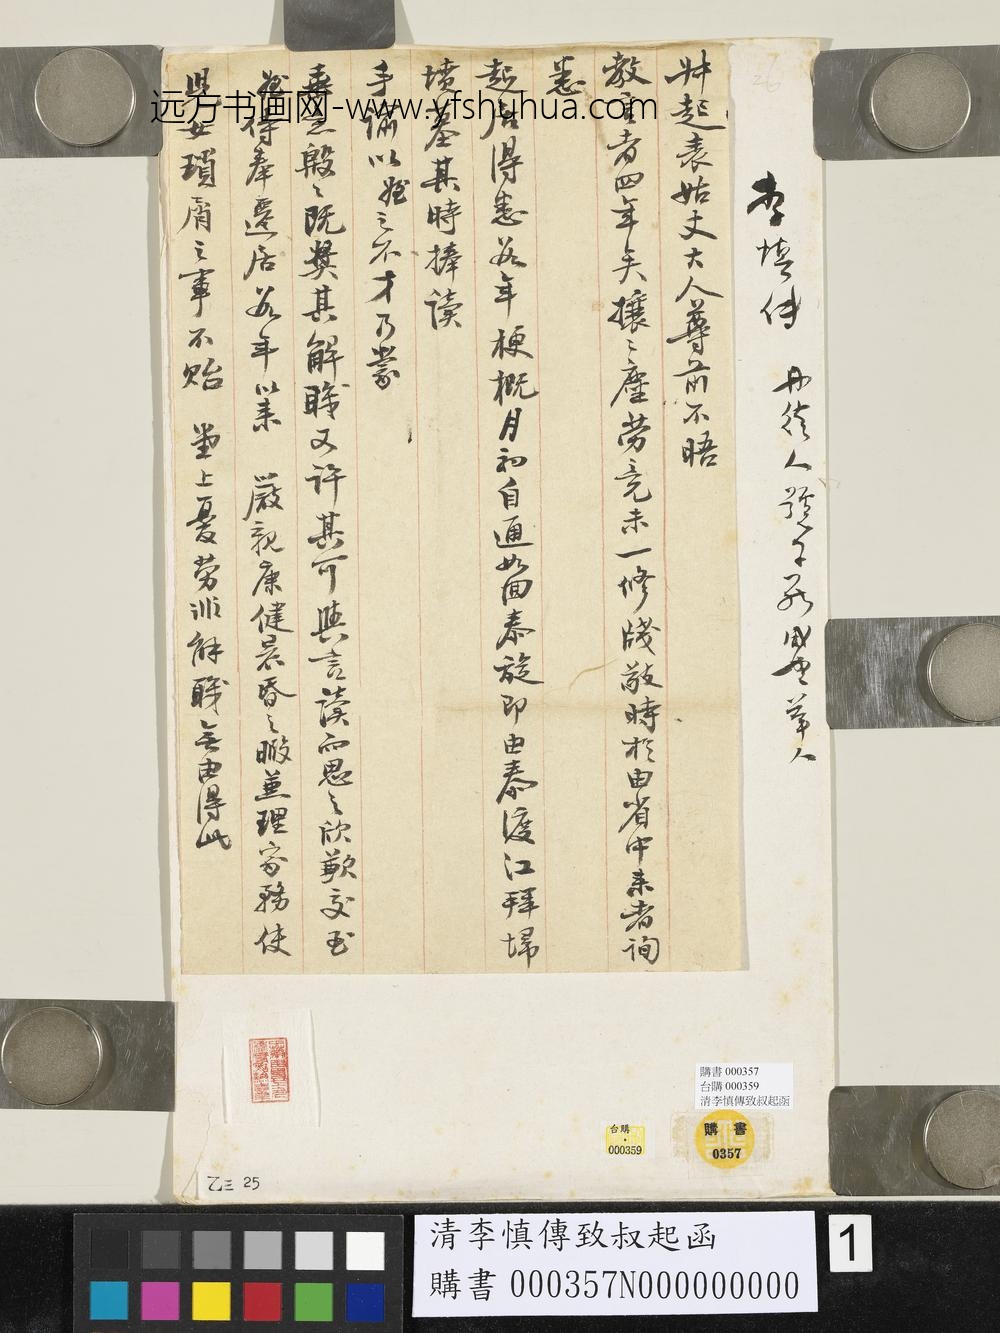 叔起表姑丈大人尊前不晤
教言者四年矣攘々塵勞竟未一修牋敬時於由省中来者詢
悉
起居得悉、年梗概月初自通如回泰旋即由泰渡江拜埽
墳墓其時捧读
手諭以姪之不才乃蒙
垂念殷々既奬其解職又许其可與言读而思之欣歉交至
姪侍奉還居、年以来 嚴親康健晨昏之暇兼理家務使
兒女瑣屑之事不貽 堂上憂劳非解職無由得此
李慎傳 丹徒人號子
远方书画网-www.yfshuhua.com
購書 000357
台購 000359
清李慎傳致叔起函
台購
000359
購書
0357
乙三 25
清李慎傳致叔起函
購書 000357N000000000
1